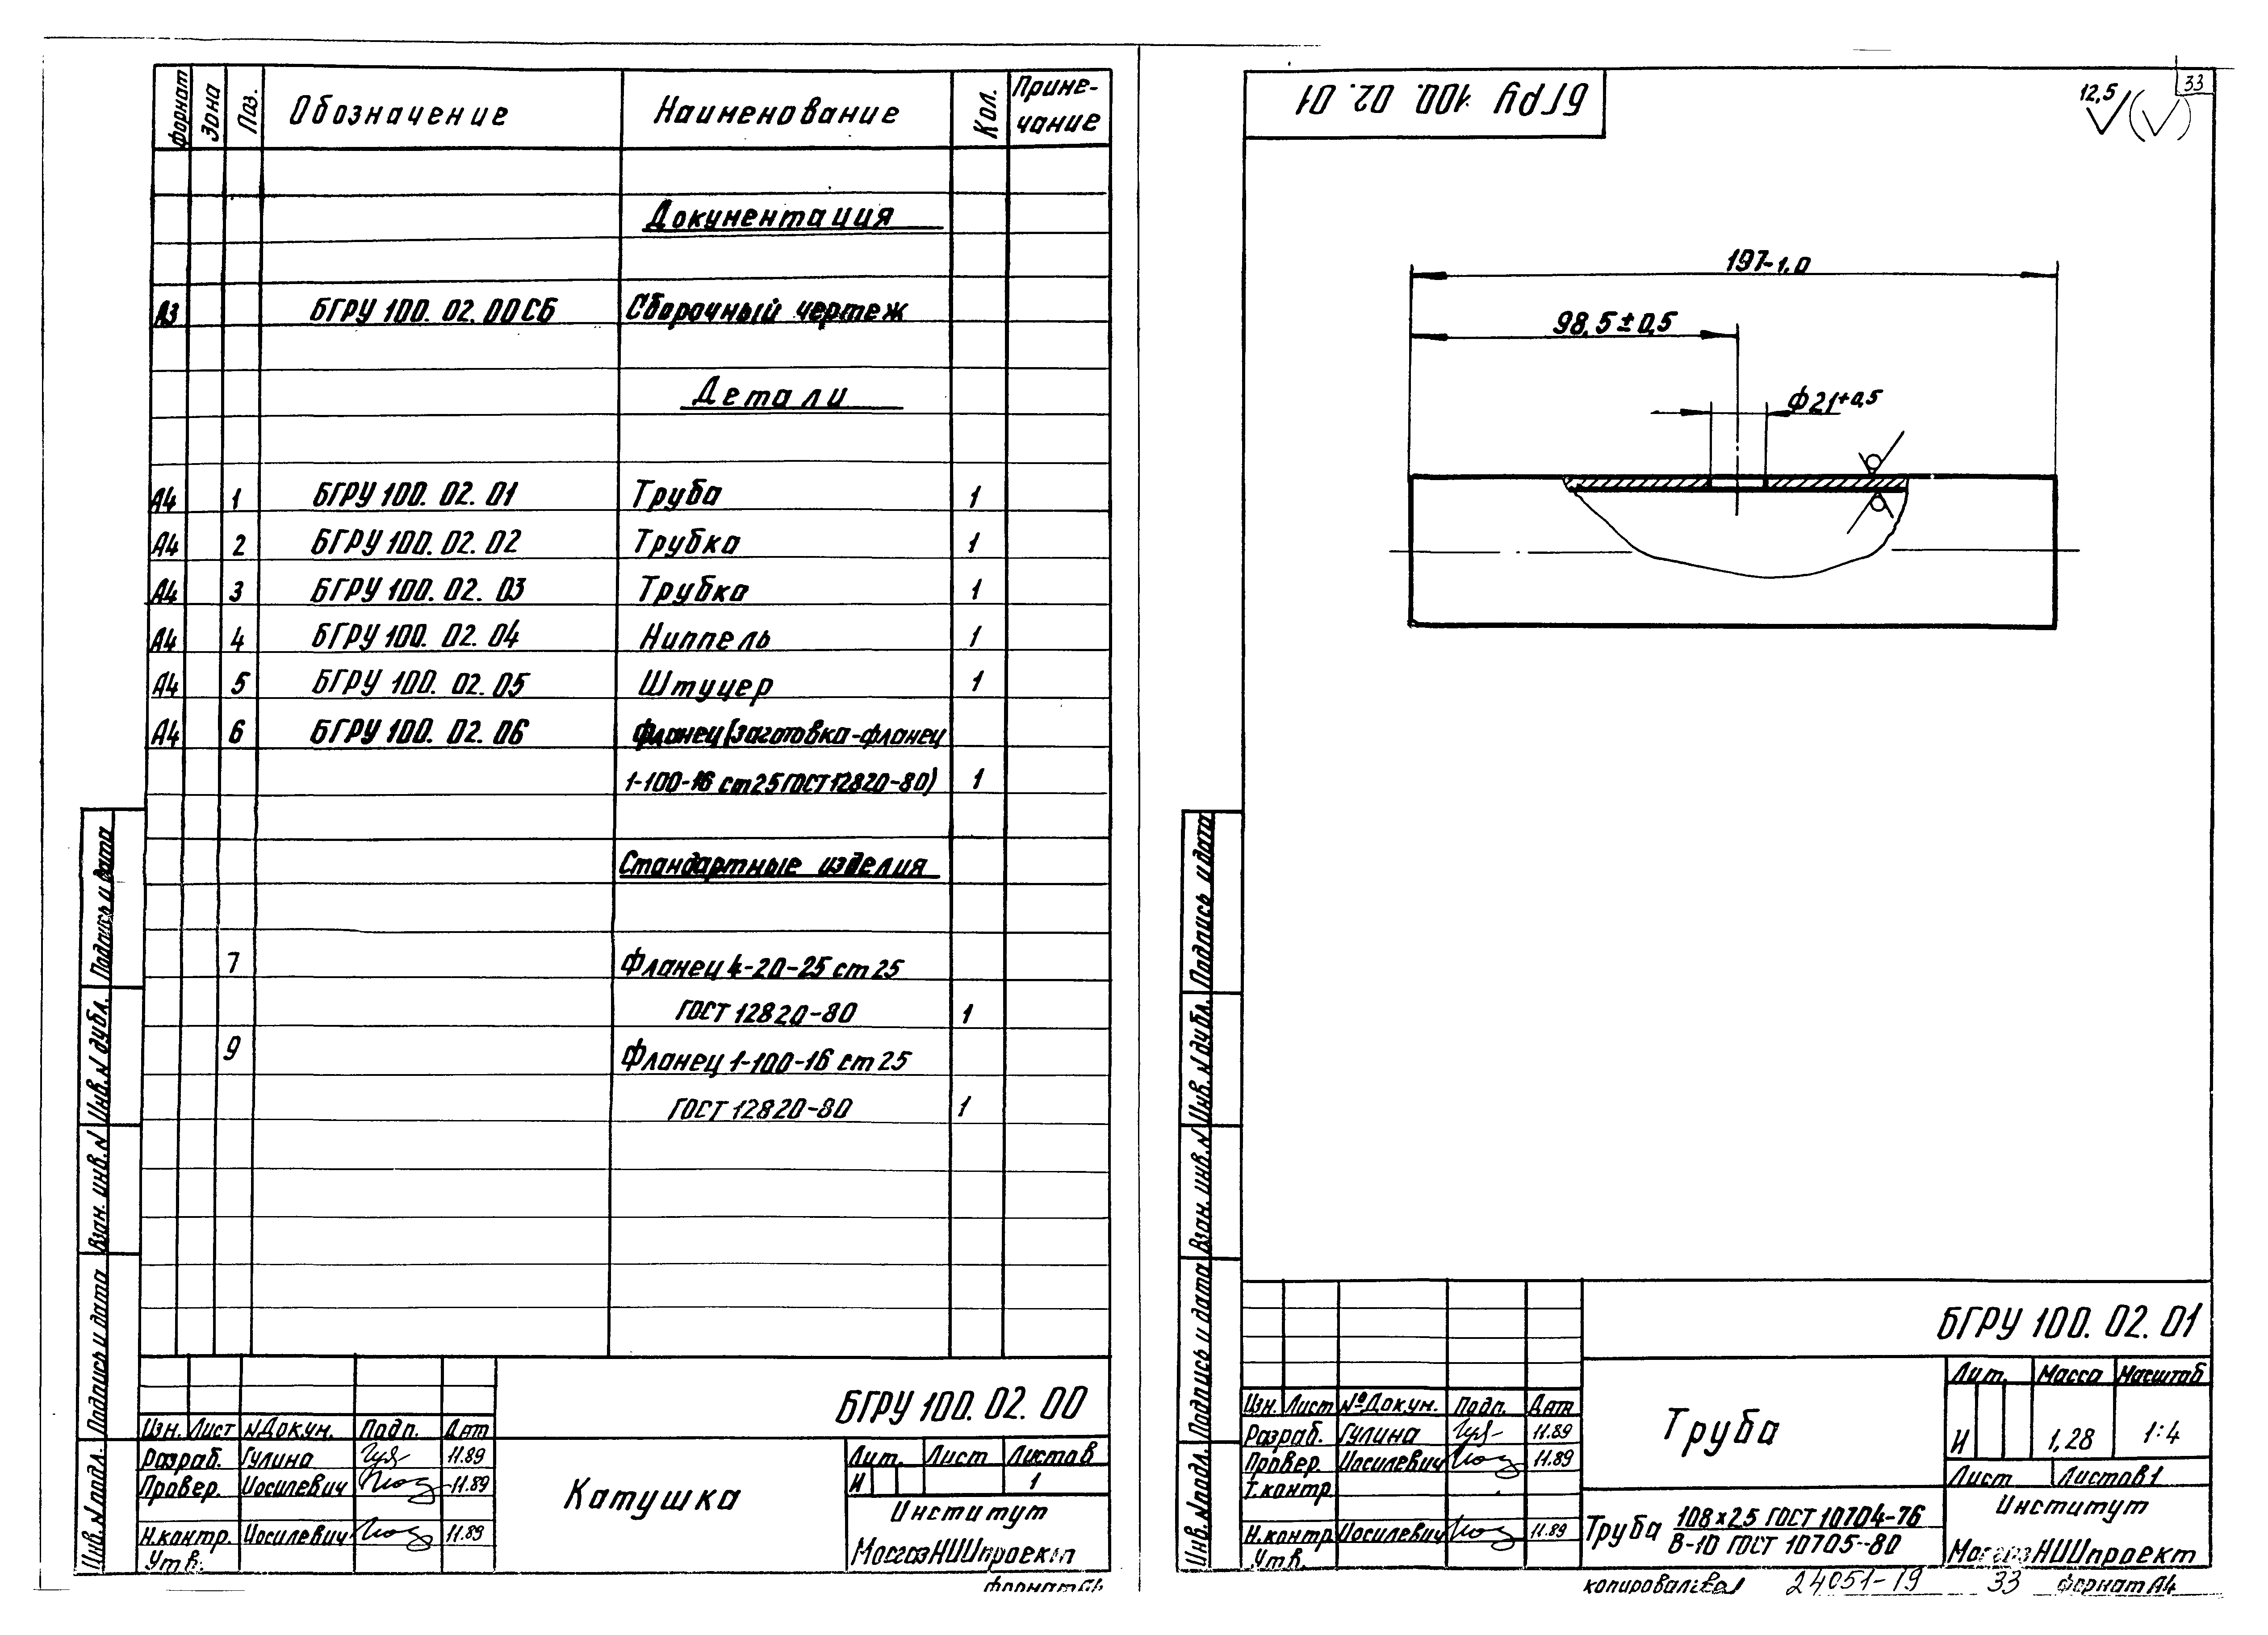 Формат Зона Поз. Обозначение Наименование Кол. Приме-
чание
Документация
А3 БГРУ 100. 02. 00СБ Сборочный чертеж
Детали
А4 1 БГРУ 100. 02. 01 Труба 1
А4 2 БГРУ 100. 02. 02 Трубка 1
А4 3 БГРУ 100. 02. 03 Трубка 1
А4 4 БГРУ 100. 02. 04 Ниппель 1
А4 5 БГРУ 100. 02. 05 Штуцер 1
А4 6 БГРУ 100. 02. 06 Фланец (заготовка-фланец
1-100-16 ст25 ГОСТ 12820-80) 1
Стандартные изделия
7 Фланец 4-20-25 ст 25
ГОСТ 12820-80 1
9 Фланец 1-100-16 ст 25
ГОСТ 12820-80 1
Подпись и дата
Инв. N дубл.
Взам. инв. N
Подпись и дата
Инв. N подл.
БГРУ 100. 02. 00
Изм. Лист N Докум. Подп. Дат
Разраб. Гулина 11.89
Провер. Иосилевич 11.89
Н.контр. Иосилевич 11.89
Утв.
Катушка
Лит. Лист Листов
И 1
Институт
МосгазНИИпроект
Формат А4
БГРУ 100. 02. 01
33
12,5
197-1,0
98,5±0,5
Ф21+0,5
Подпись и дата
Инв. N дубл.
Взам. инв. N
Подпись и дата
Инв. N подл.
БГРУ 100. 02. 01
Изм. Лист № Докум. Подп. Дат
Разраб. Гулина 11.89
Провер. Иосилевич 11.89
Т.контр
Н.контр Иосилевич 11.89
Утв.
Труба
Лит. Масса Масштаб
И 1,28 1:4
Лист Листов 1
Труба 108×2,5 ГОСТ 10704-76
В-10 ГОСТ 10705-80
Институт
МосгазНИИпроект
24051-19 33 Формат А4